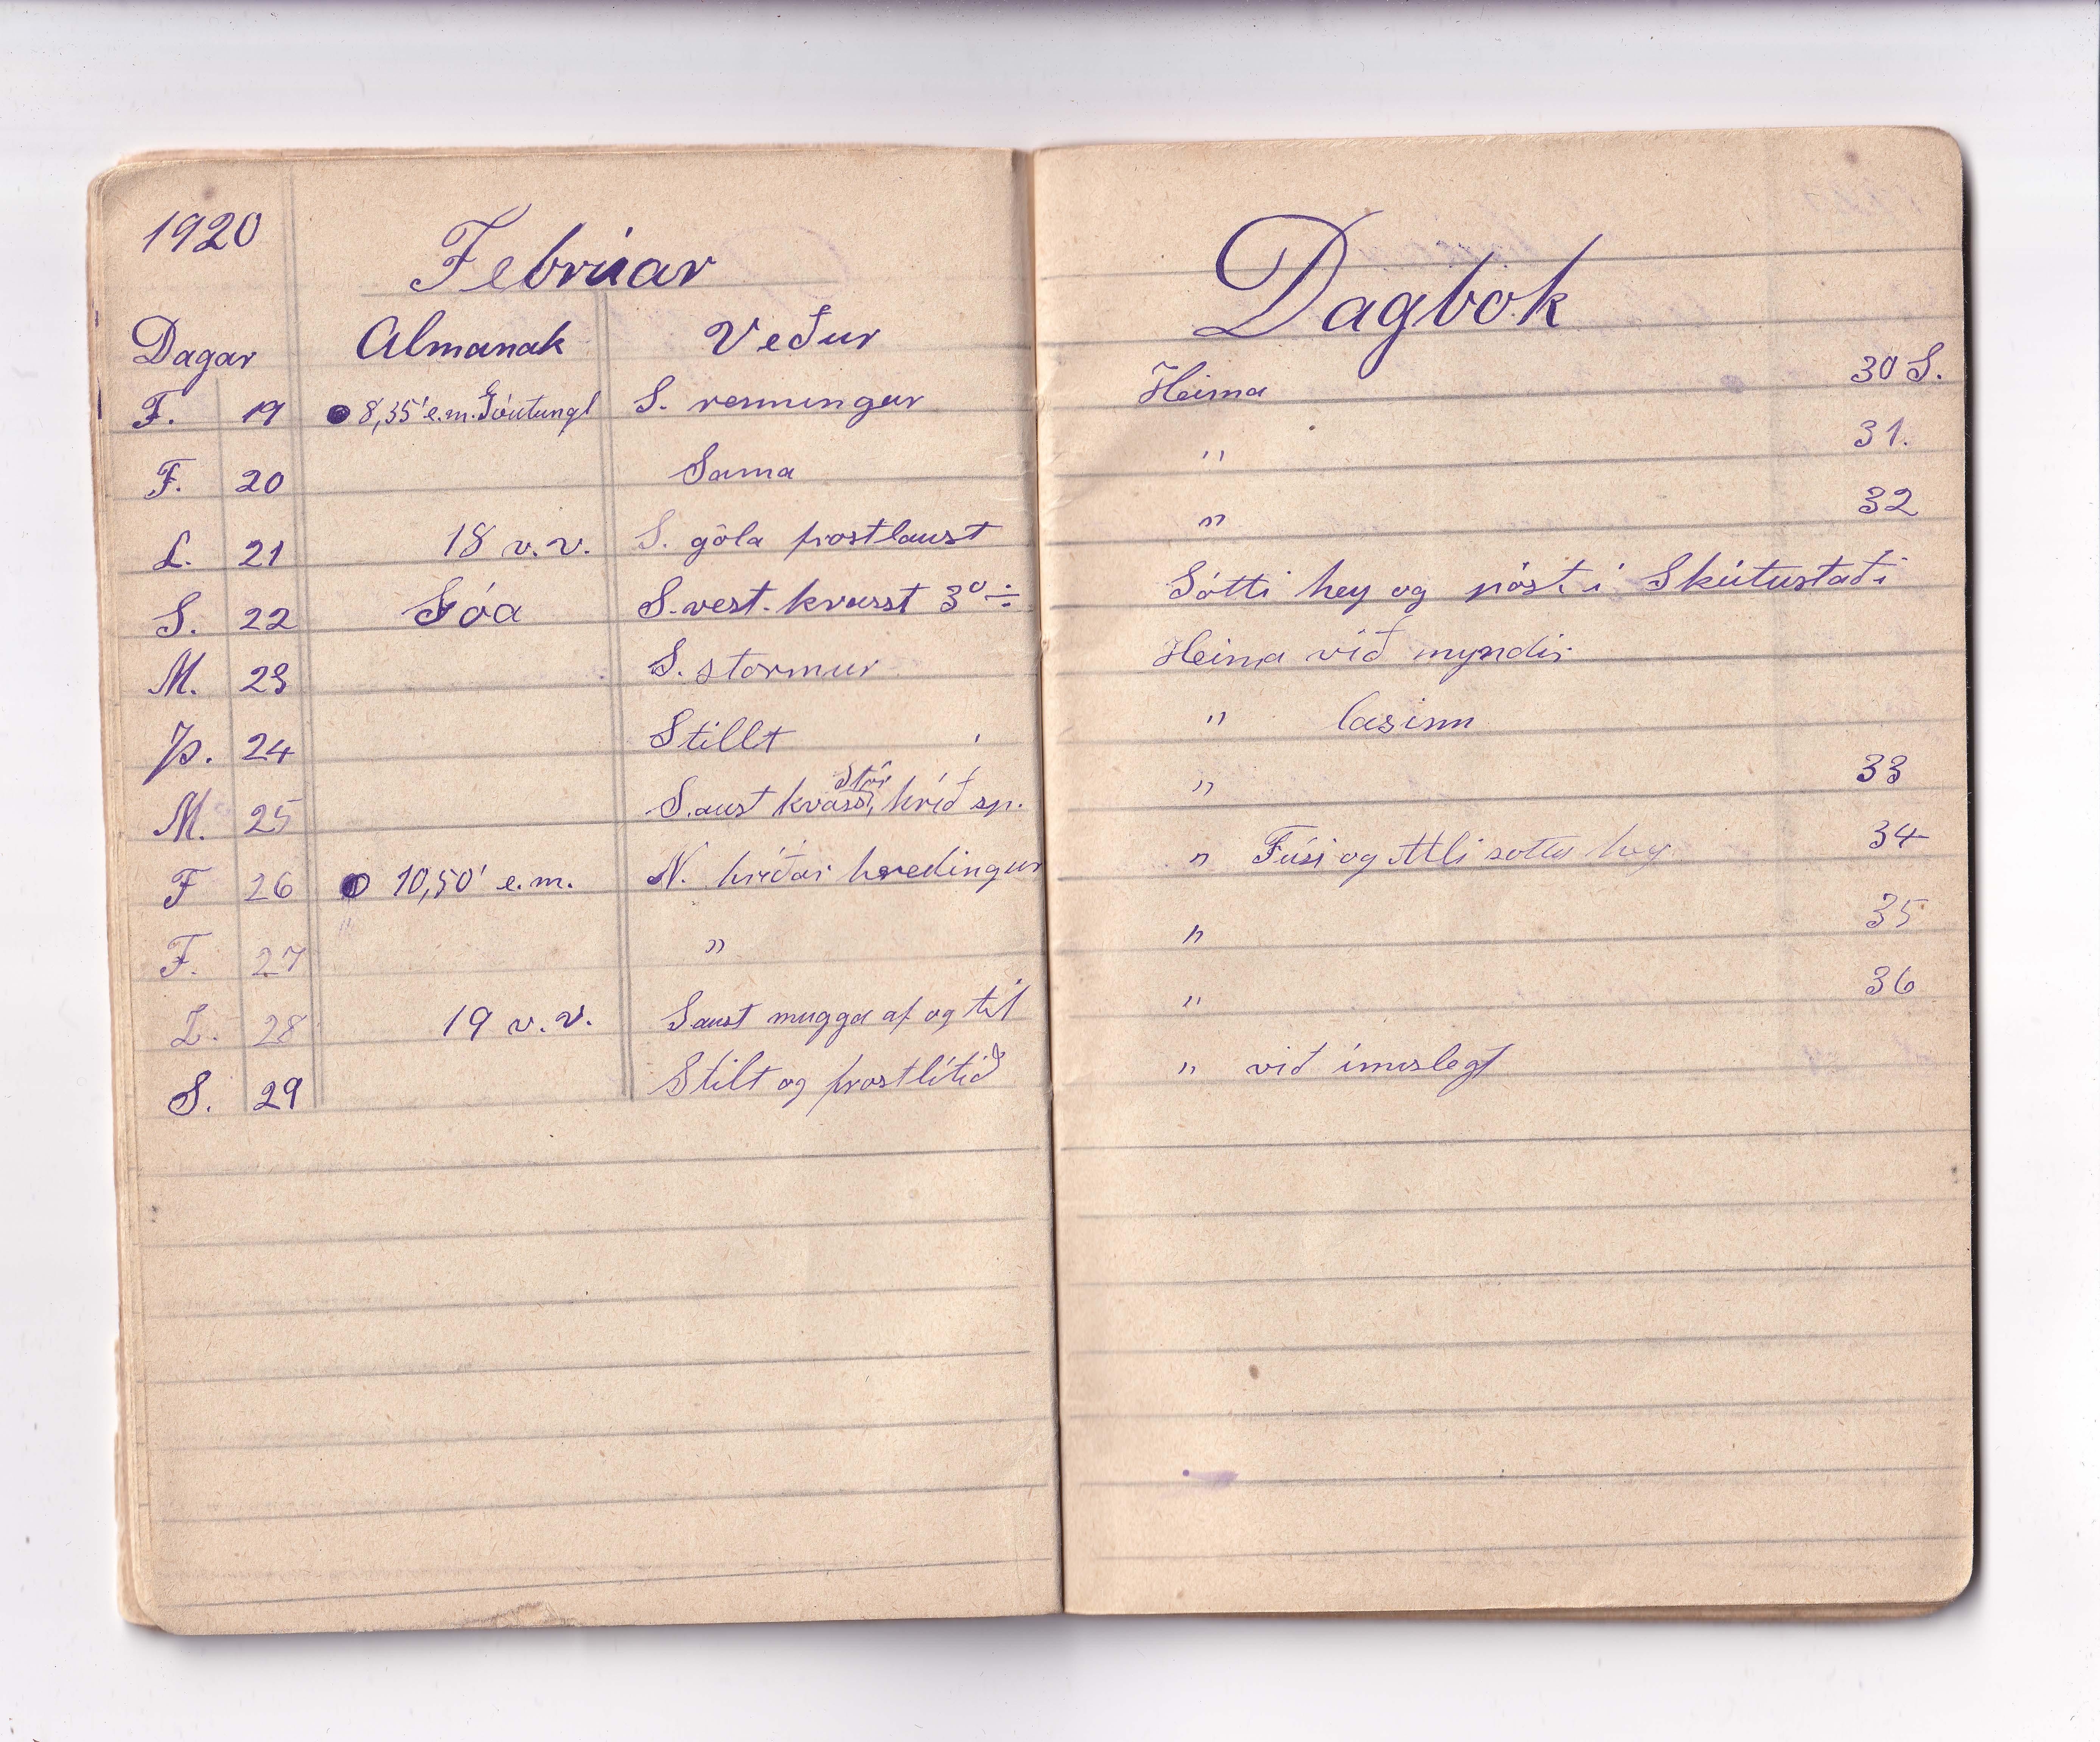 1920
Febrúar
Dagar Almanak Veður
F. 19 ● 8,35' e.m. Góutungl S. renningur
F. 20 Sama
L. 21 18 v.v. S. gola frostlaust
S. 22 Góa S. vest. kvasst 3° ÷
M. 23 S. stormur
Þ. 24 Stillt
M. 25 S. aust kvasst, stór hríð sp.
F 26 10,50' e.m. N. hríðar hredingur
F. 27 "
L. 28 19 v.v. S aust mugga af og til
S. 29 Stilt og frostlítið
Dagbok
Heima 30 S.
" 31.
" 32
Sótti hey og póst í Skútustaði
Heima við myndir
" lasinn
" 33
" Fúsi og Alli sottu hey 34
" 35
" 36
" við ímislegt